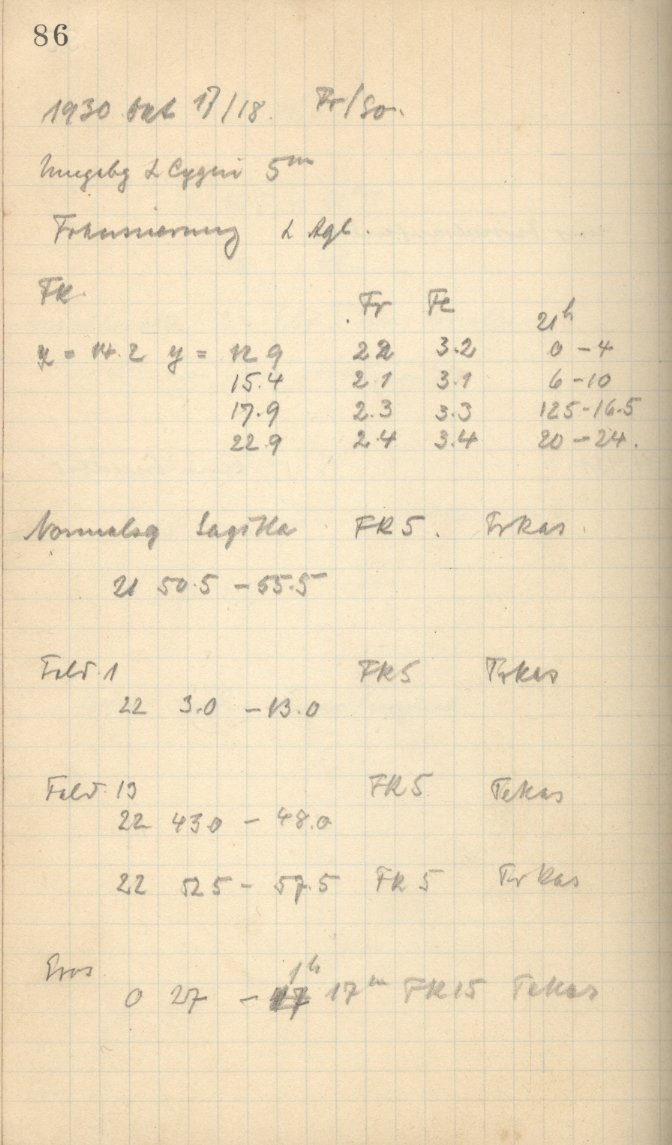 86
1930 Okt 17/18. Fr/So.
Umgebg α Cygni 5ᵐ
Fokussierung
FK
Fr Fe 21ʰ
x = 14.2 y = 12.9 2.2 3.2 0 - 4
15.4 2.1 3.1 6 - 10
17.9 2.3 3.3 12.5 - 16.5
22.9 2.4 3.4 20 - 24.
Normalsq Sagitta FK5.
21 50.5 - 55.5
Feld 1 FK5
22 3.0 - 13.0
Feld 13 FK5 Tekas
22 43.0 - 48.0
22 52.5 - 57.5 FK5
Eros
0 27 - 1ʰ 17ᵐ FK15 Tekas